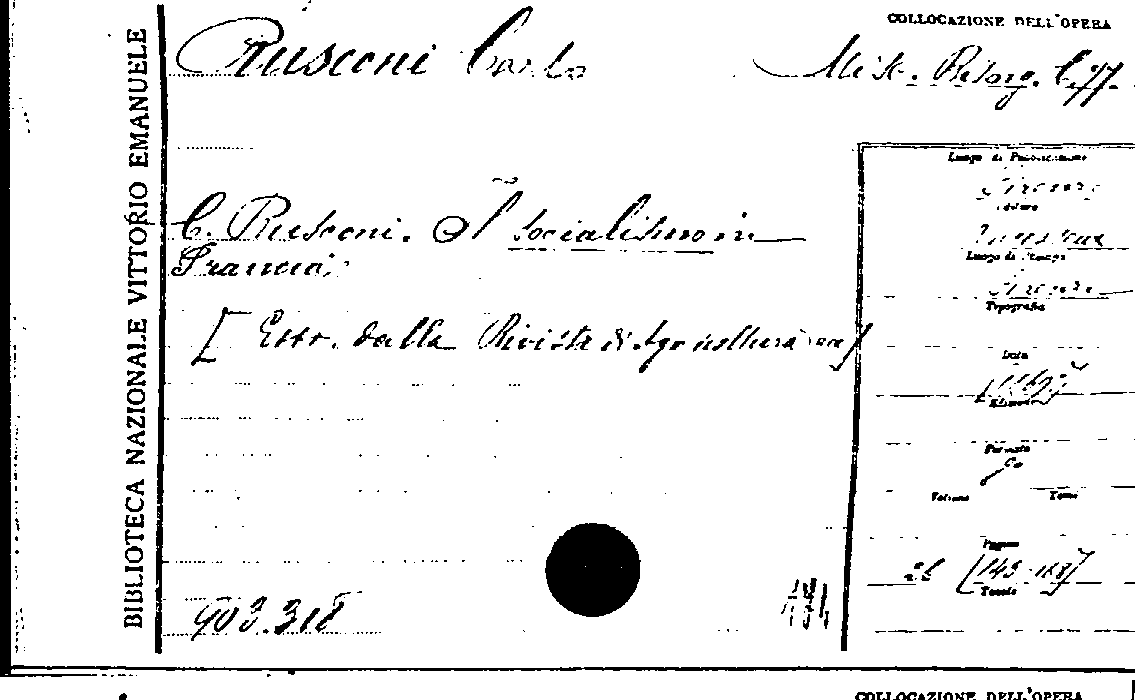 COLLOCAZIONE DELL'OPERA
Rusconi Carlo
Misc. Risorg. C. 77.
BIBLIOTECA NAZIONALE VITTORIO EMANUELE
C. Rusconi. Il socialismo in
Francia.
[Estr. dalla Rivista di Agricoltura]
Luogo di Pubblicazione
Firenze
Editore
Luogo di Stampa
Firenze
Tipografia
Data
Edizione
Formato
8°
Volume Tomi
Pagine
[145-168]
Tavole
903.318
COLLOCAZIONE DELL'OPERA